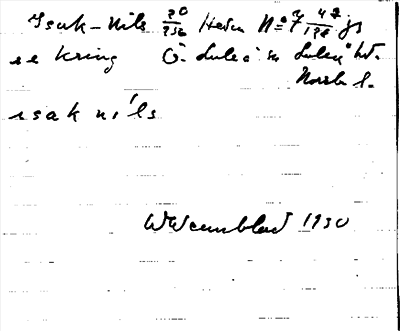 Isak-Nils 20/936 Heden No 7 47/198 gs
se kring Ö. Luleå sn Luleå hd.
Norrb l.
isak nils
W Wennblad 1930